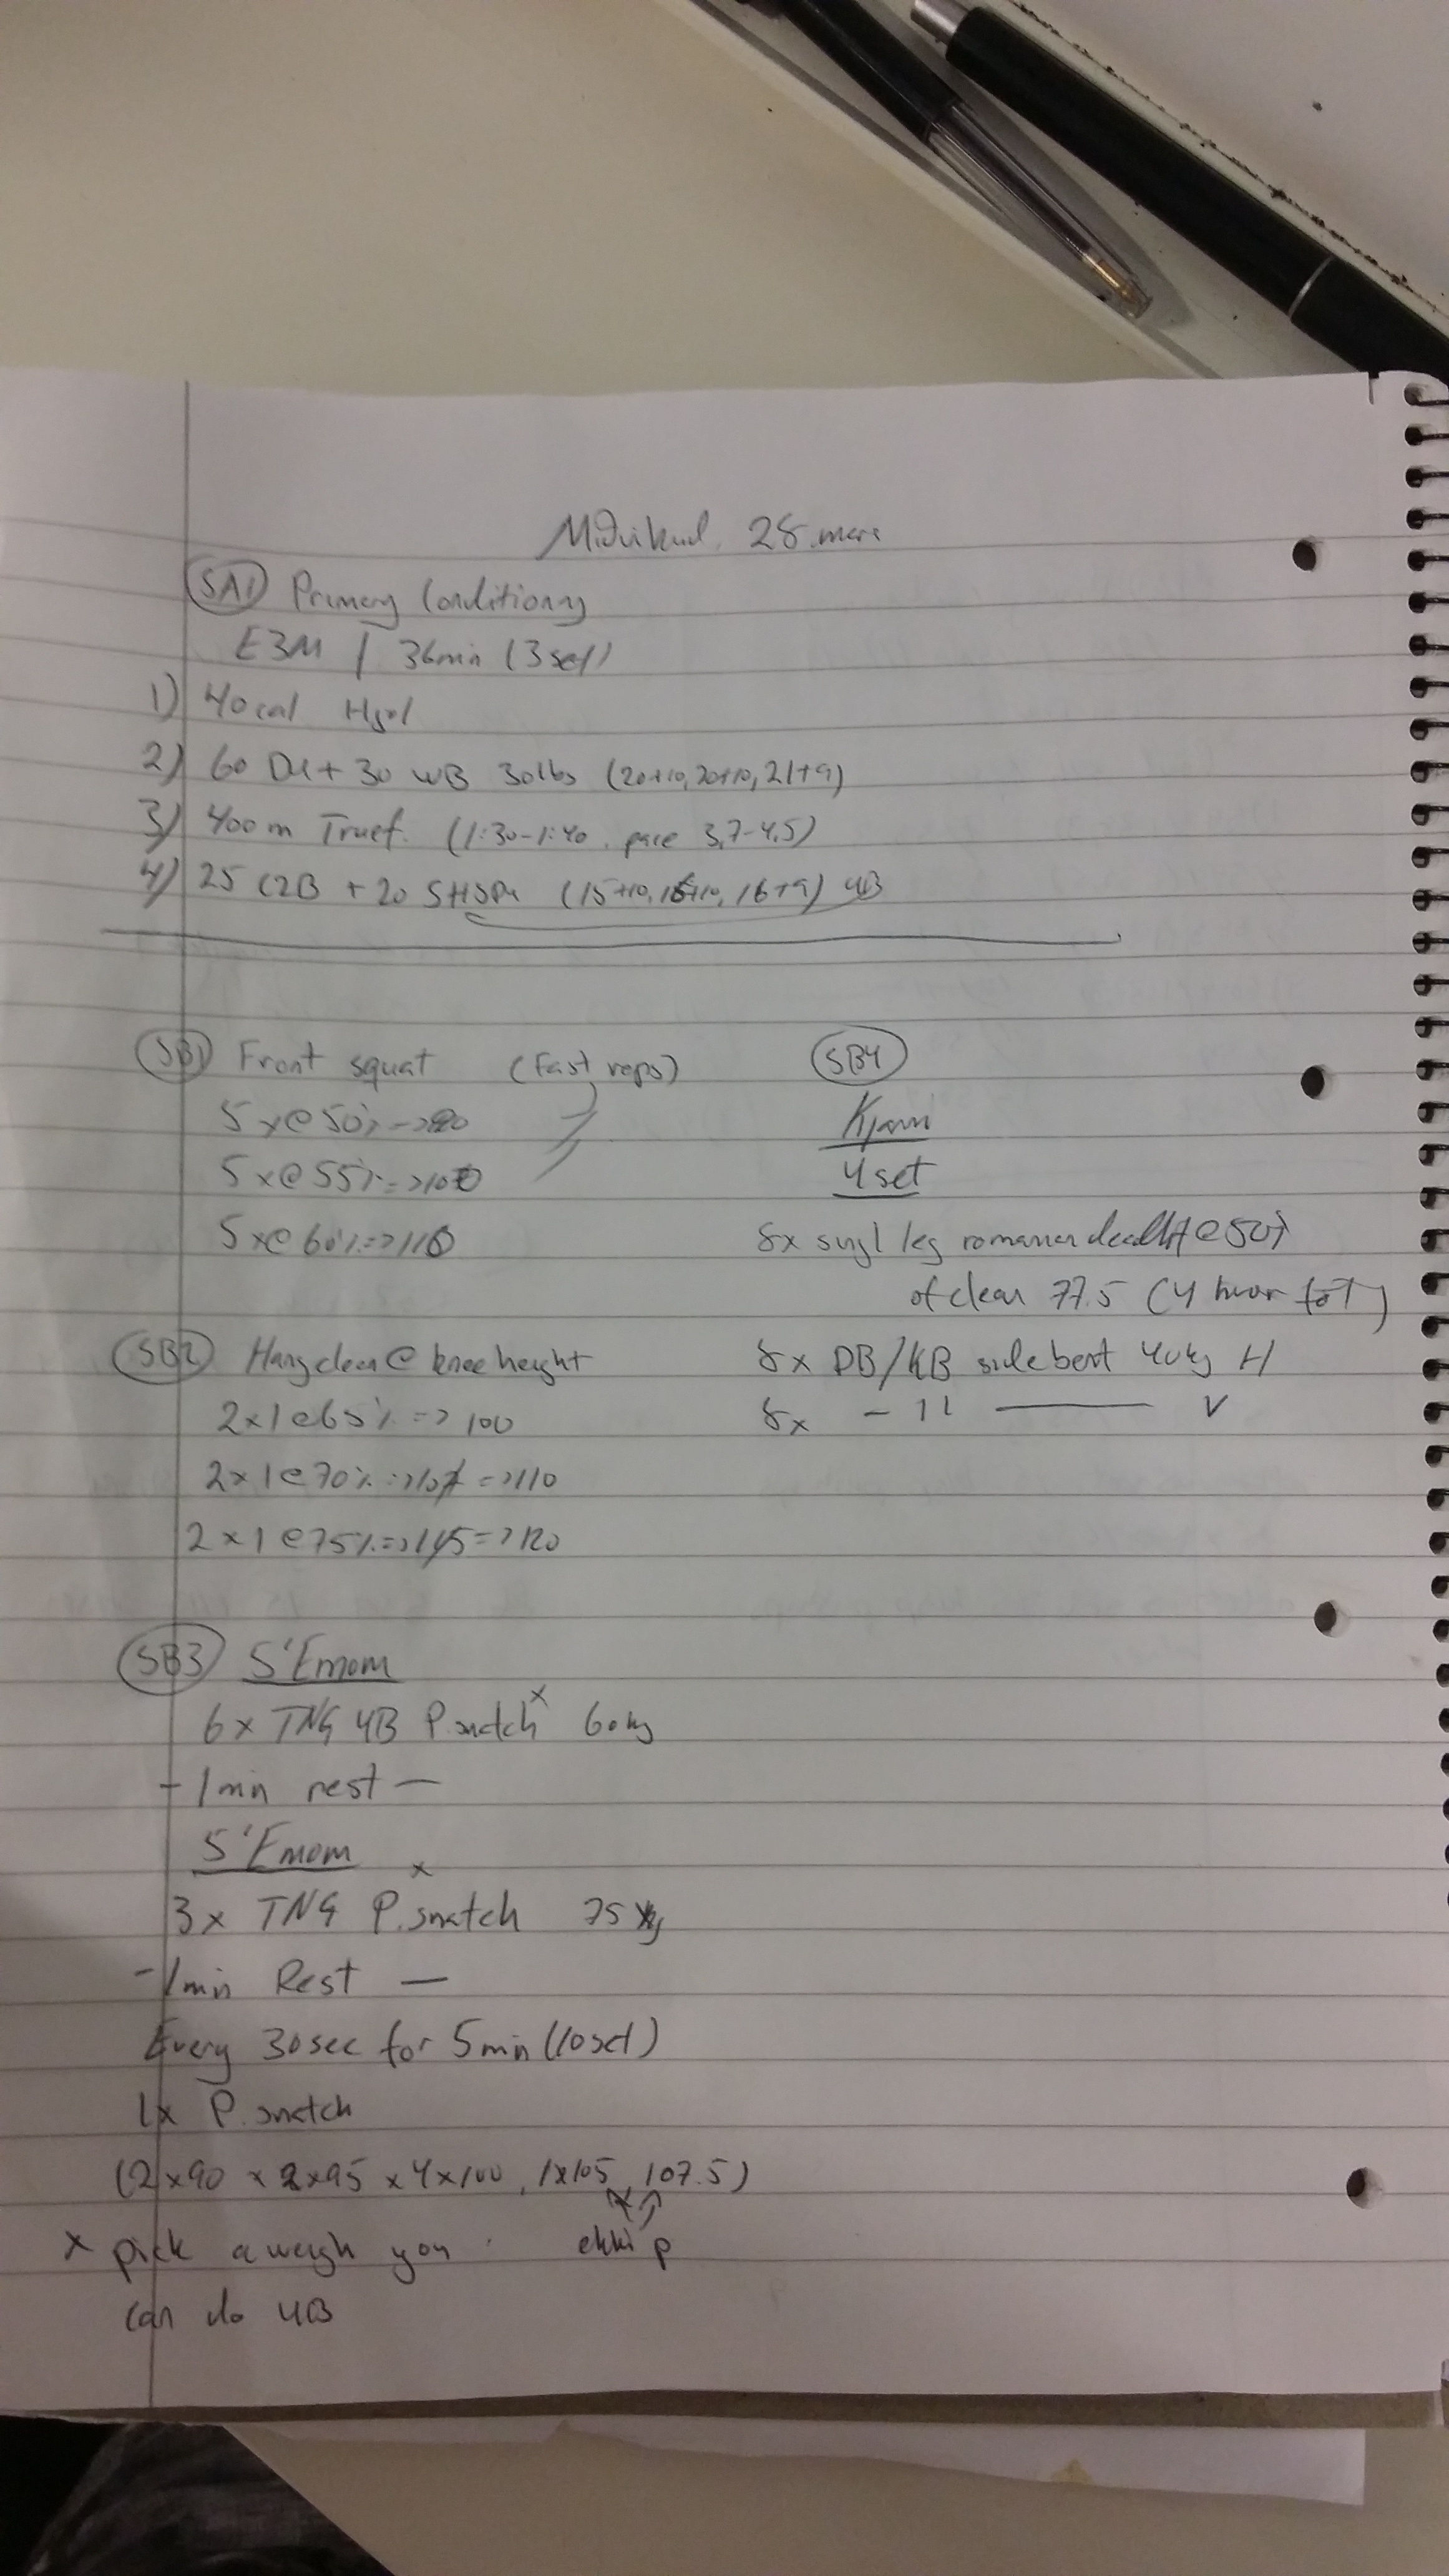 Miðvikud. 28. mars
SA1 Primary Conditioning
E3M / 36min (3 set)
1) 40 cal Hjól
2) 60 DU + 30 WB 30lbs (20+10, 20+10, 21+9)
3) 400 m Truef. (1:30-1:40. pace 3,7-4,5)
4) 25 C2B + 20 SHSPU (15+10, 15+10, 16+9) UB
SB1 Front squat (Fast reps)
5 x @ 50%
5 x @ 55% => 100
5 x @ 60% => 110
SB2 Hang clean @ knee height
2 x 1 @ 65% => 100
2 x 1 @ 70% => 107 => 110
2 x 1 @ 75% => 115 => 120
SB3 5' Emom
6 x TNG UB P.snatch x 60kg
- 1 min rest -
5' Emom
3 x TNG P.snatch x 75 kg
- 1 min Rest -
Every 30 sec for 5 min (10 set)
1x P.snatch
(2x90 x 2x95 x 4x100, 1x105, 107.5)
ekki p
x pick a weigh you
can do UB
SB4
4 set
8x singl leg romanian deadlift @ 50%
of clean 77.5 (4 hvor fót)
8x DB/KB side bent 40kg H
8x - 11 - V